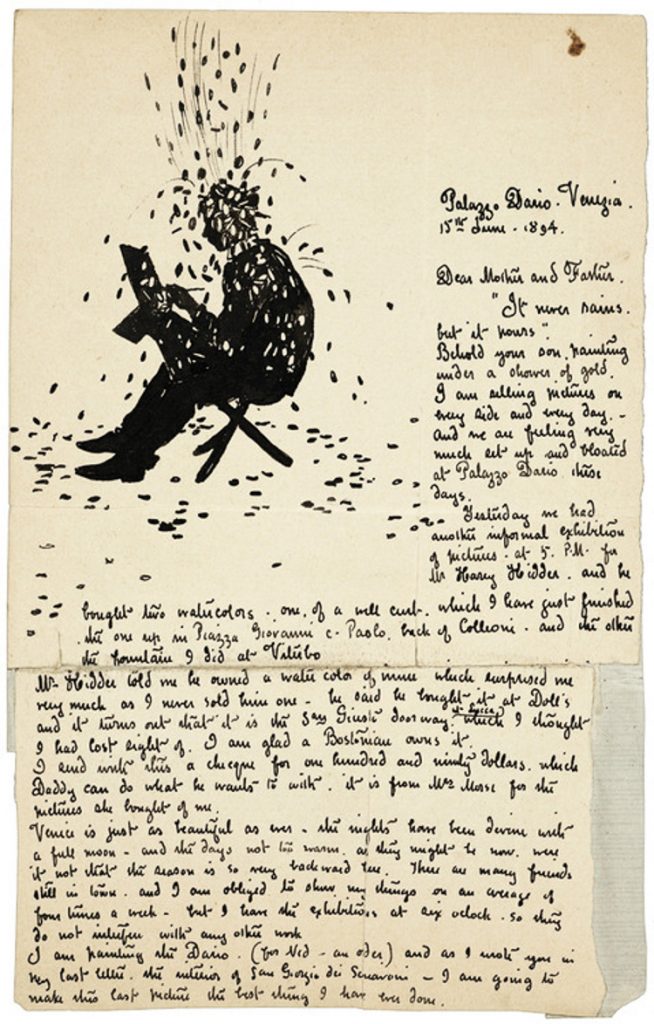 Palazzo Dario. Venezia.
15th June. 1894.
Dear Mother and Father.
"It never rains.
but it pours".
Behold your son, painting
under a shower of gold.
I am selling pictures on
every side and every day. -
and we are feeling very
much set up and bloated
at Palazzo Dario these
days.
Yesterday we had
another informal exhibition
of pictures. at 5. P.M. for
Mr Harry and he
bought two watercolors. one, of a well curb. which I have just finished
the one up in Piazza Giovanni e. Paolo. back of Colleoni. and the other
the fountain I did at Viterbo
Mr. told me he owned a water color of mine which surprised me
very much as I never sold him one - he said he bought it at Doll's
and it turns out that it is the San Giusti doorway, which I thought
I had lost sight of. I am glad a Bostonian owns it.
I send with this a checque for one hundred and ninety dollars. which
Daddy can do what he wants to with. it is from Mrs Morse for the
pictures she bought of me.
Venice is just as beautiful as ever - the nights have been devine with
a full moon - and the days not too warm. as they might be now. were
it not that the season is so very backward here. There are many friends
still in town. and I am obliged to show my things on an average of
four times a week - but I have the exhibitions at six oclock. so they
do not interfere with any other work
I am painting the Dario. (for Ned - an oder) and as I wrote you in
my last letter. the interior of San Giorgio dei Sciavoni - I am going to
make this last picture the best thing I have ever done.